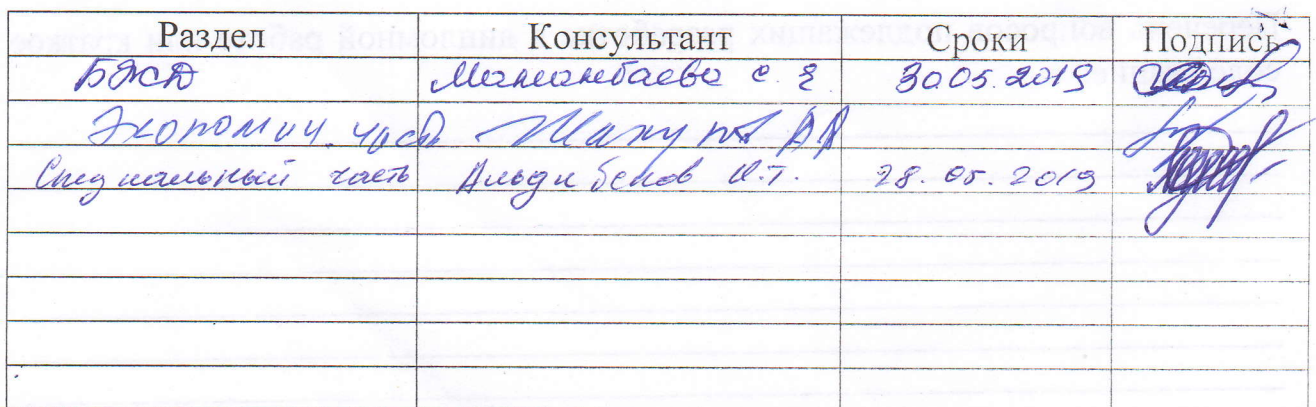 Раздел Консультант Сроки Подпись
БЖД Мананбаева С. Е 30.05.2019
Экономич. часть А А
Специальный часть Альдибеков И.Т. 28.05.2019